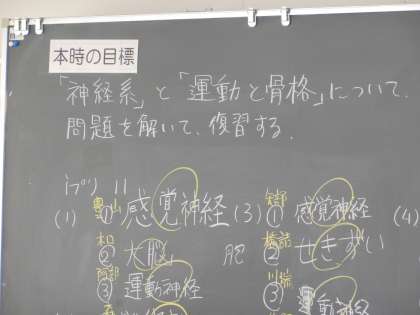 本時の目標
「神経系」と「運動と骨格」について、
問題を解いて、復習する.
プリ 11
(1) ① 感覚神経
② 大脳
③ 運動神経
肥
(3) ① 感覚神経
② せきずい
③ 運動神経
(4)